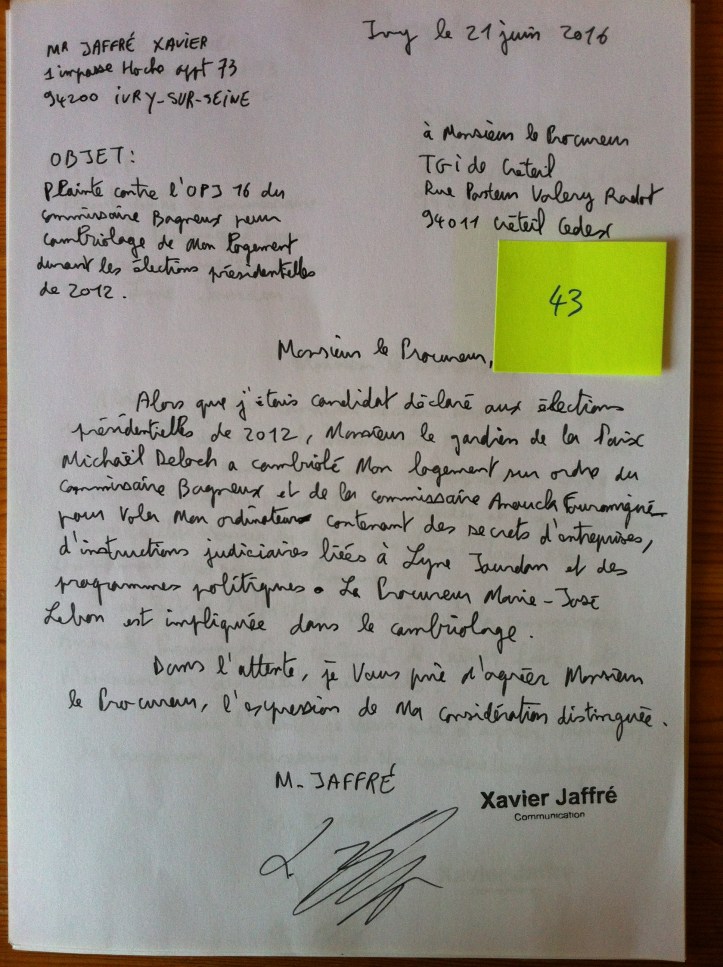 Ivry le 21 juin 2016
MR JAFFRÉ XAVIER
1 impasse Hoche appt 73
94200 IVRY-SUR-SEINE
à Monsieur le Procureur
TGI de Créteil
Rue Pasteur Valery Radot
94011 Créteil Cedex
OBJET:
Plainte contre l'OPJ 16 du
commissaire Bagneux pour
cambriolage de Mon logement
durant les élections présidentielles
de 2012.
43
Monsieur le Procureur,
Alors que j'étais candidat déclaré aux élections
présidentielles de 2012, Monsieur le gardien de la Paix
Michaël Deloch a cambriolé Mon logement sur ordre du
commissaire Bagneux et de la commissaire Anouck Fouromigué
pour Voler Mon ordinateur contenant des secrets d'entreprises,
d'instructions judiciaires liées à Lyne Jourdan et des
programmes politiques. Le Procureur Marie-José
Lebon est impliquée dans le cambriolage.
Dans l'attente, je Vous prie d'agréer Monsieur
le Procureur, l'expression de Ma considération distinguée.
M. JAFFRÉ
Xavier Jaffré
Communication